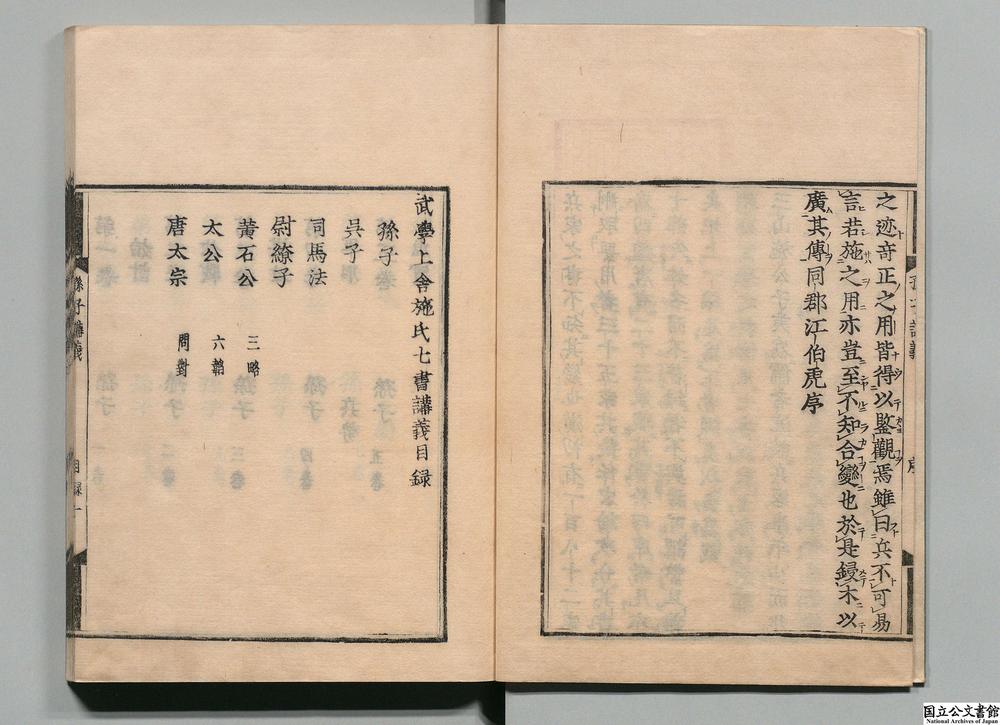 之迹竒正之用皆得以鑒觀焉雖曰兵不可易
言若施之用亦豈至不知合變也於是鋟木以
廣其傳同郡江伯虎序
孫子講義
序
武學上舍施氏七書講義目録
孫子
吳子
司馬法
尉繚子
黄石公 三略
太公 六韜
唐太宗 問對
孫子講義
目録一
国立公文書館
National Archives of Japan